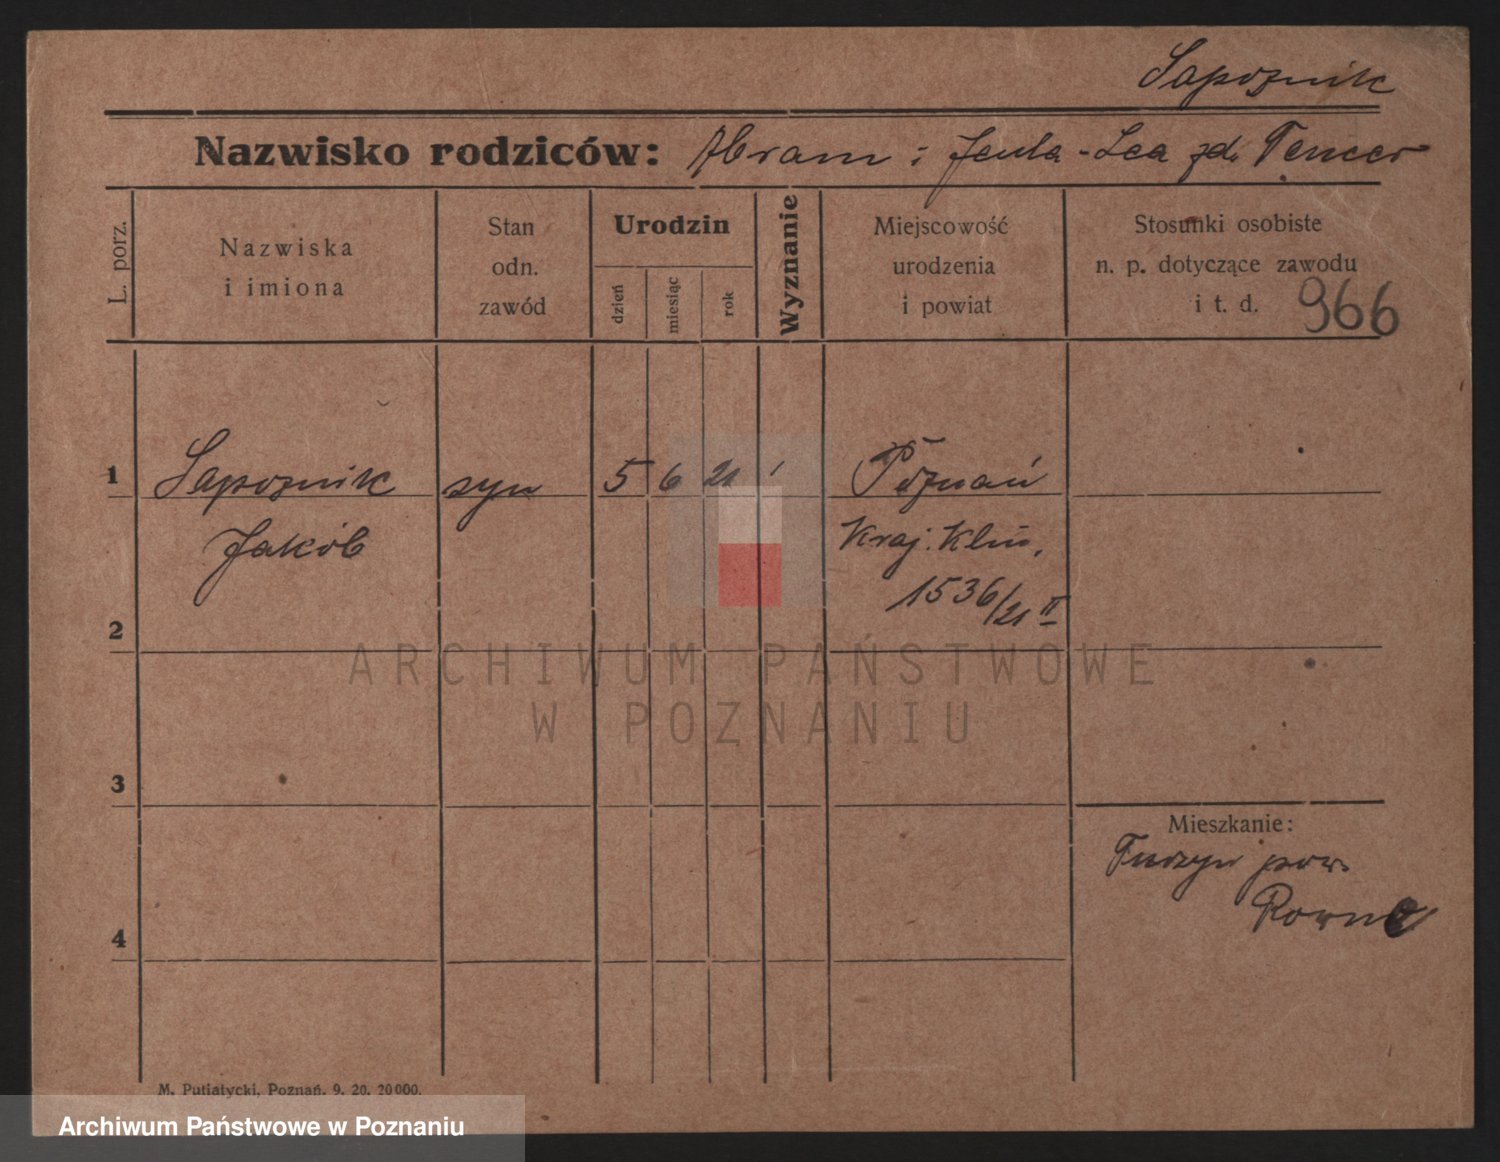 Sapoznik
Nazwisko rodziców: Abram i Jenta-Lea zd. Tencer
L. porz.
Nazwiska
i imiona
Stan
odn.
zawód
Urodzin
dzień
miesiąc
rok
Wyznanie
Miejscowość
urodzenia
i powiat
Stosunki osobiste
n. p. dotyczące zawodu
i t. d. 966
1 Sapoznik syn 5 6 21 Poznań
Jakób Kraj. Klin.
1536/21 II
2
3
Mieszkanie:
Tuczyn pow.
Rowne
4
M. Putiatycki, Poznań. 9. 20. 20000.
ARCHIWUM PAŃSTWOWE
W POZNANIU
Archiwum Państwowe w Poznaniu